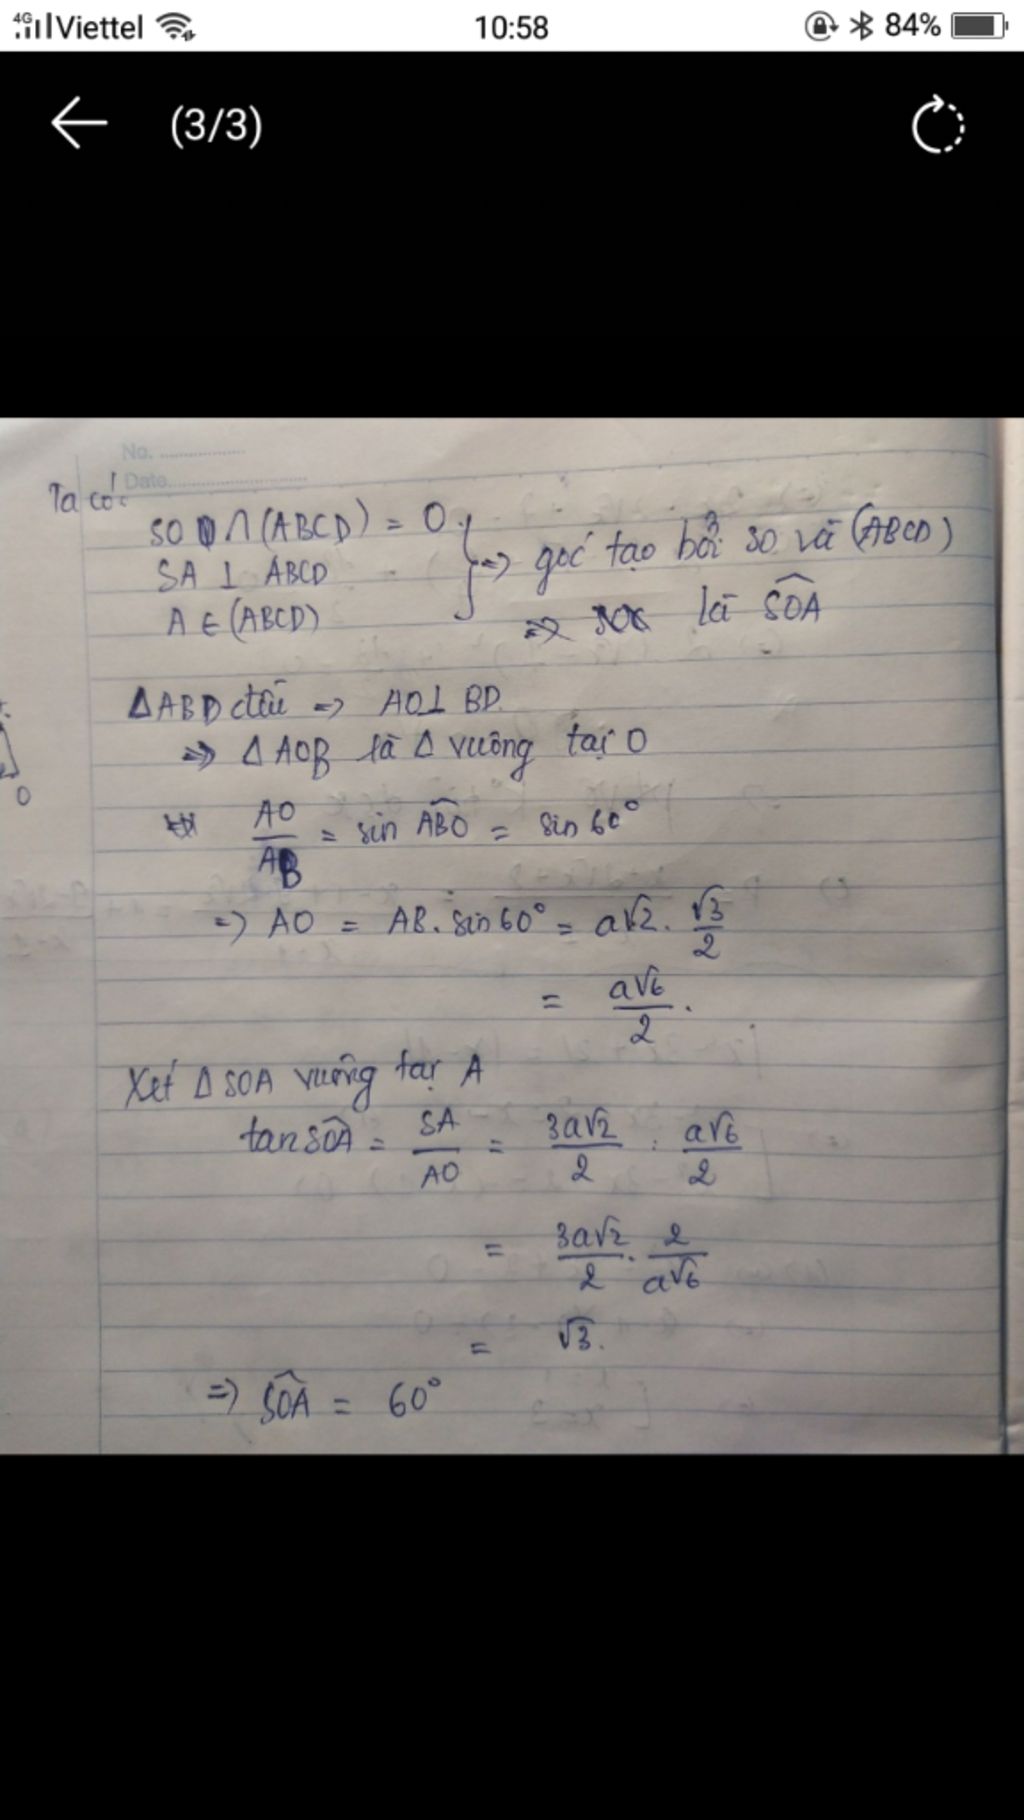 4G Viettel 10:58 84%
(3/3)
No. ................
Date..........................
Ta có:
SO ∩ (ABCD) = O
SA ⊥ ABCD
A ∈ (ABCD)
} => góc tạo bởi SO và (ABCD)
=> là SOA
ΔABD đều => AO⊥ BD.
=> Δ AOB là Δ vuông tại O
AO/AB = sin ABO = sin 60°
=> AO = AB. sin 60° = a√2. √3/2
= a√6/2.
Xét Δ SOA vuông tại A
tan SOA = SA/AO = 3a√2/2 : a√6/2
= 3a√2/2 . 2/a√6
= √3.
=> SOA = 60°
O